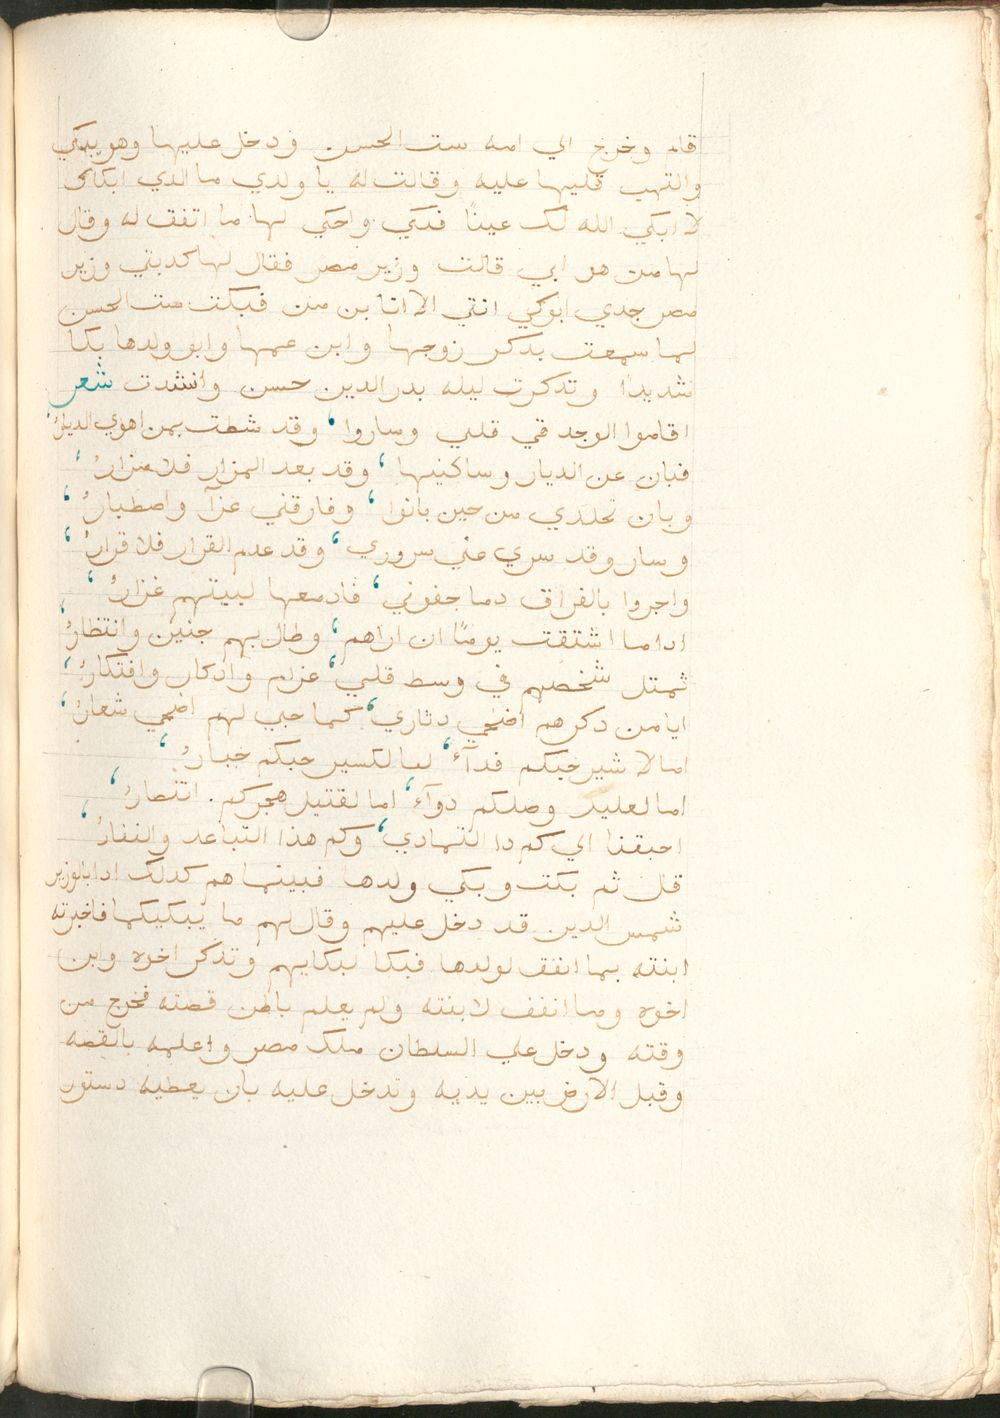 قام وخرج الي امه ست الحسن ودخل عليها وهو يبكي
والتهب قلبها عليه وقالت له يا ولدي ما الدي ابكاك
لا ابكي الله لك عينًا فبكي واحكي لها ما اتفق له وقال
لها من هو ابي قالت وزير مصر فقال لها كدبتي وزير
مصر جدي ابوكي انتي الا انا بن من فبكت ست الحسن
لما سمعت بدكر زوجها وابن عمها وابو ولدها بكا
شديدا وتدكرت ليله بدر الدين حسن وانشدت شعر
اقاموا الوجد في قلبي وساروا، وقد شطت بمن اهوي الديارُ،
فبان عن الديار وساكنيها، وقد بعد المزار فلا مزارُ،
وبان تجلدي من حين بانوا، وفارقني عزآ واصطبارُ،
وسار وقد سري عني سروري، وقد عدم القرار فلا قرارُ،
واجروا بالفراق دما جفوني، فادمعها لبيتهم غزارُ،
اداما اشتقت يومًا ان اراهم، وطال بهم حنين وانتظارُ،
ثمتل شخصهم في وسط قلبي، غرام وادكار وافتكارُ،
ايا من دكرهم اضحي دثاري، كما حبي لهم اضحي شعارُ،
اما لا شير حبكم فدآء، اما لكسير حبكم جبارُ،
اما لعليل وصلكم دوآء، اما لقتيل هجركم انتصارُ،
احبقنا اي كم دا التمادي، وكم هذا التباعد والنفارُ،
قال ثم بكت وبكي ولدها فبينما هم كدلك ادا بالوزير
شمس الدين قد دخل عليهم وقال لهم ما يبكيكما فاخبرته
ابنته بما اتفق لولدها فبكا لبكايهم وتذكر اخوه وابن
اخوه وما اتفق لابنته ولم يعلم باطن قصته فخرج من
وقته ودخل علي السلطان ملك مصر واعلمه بالقصه
وقبل الارض بين يديه وتدخل عليه بان يعطيه دستور